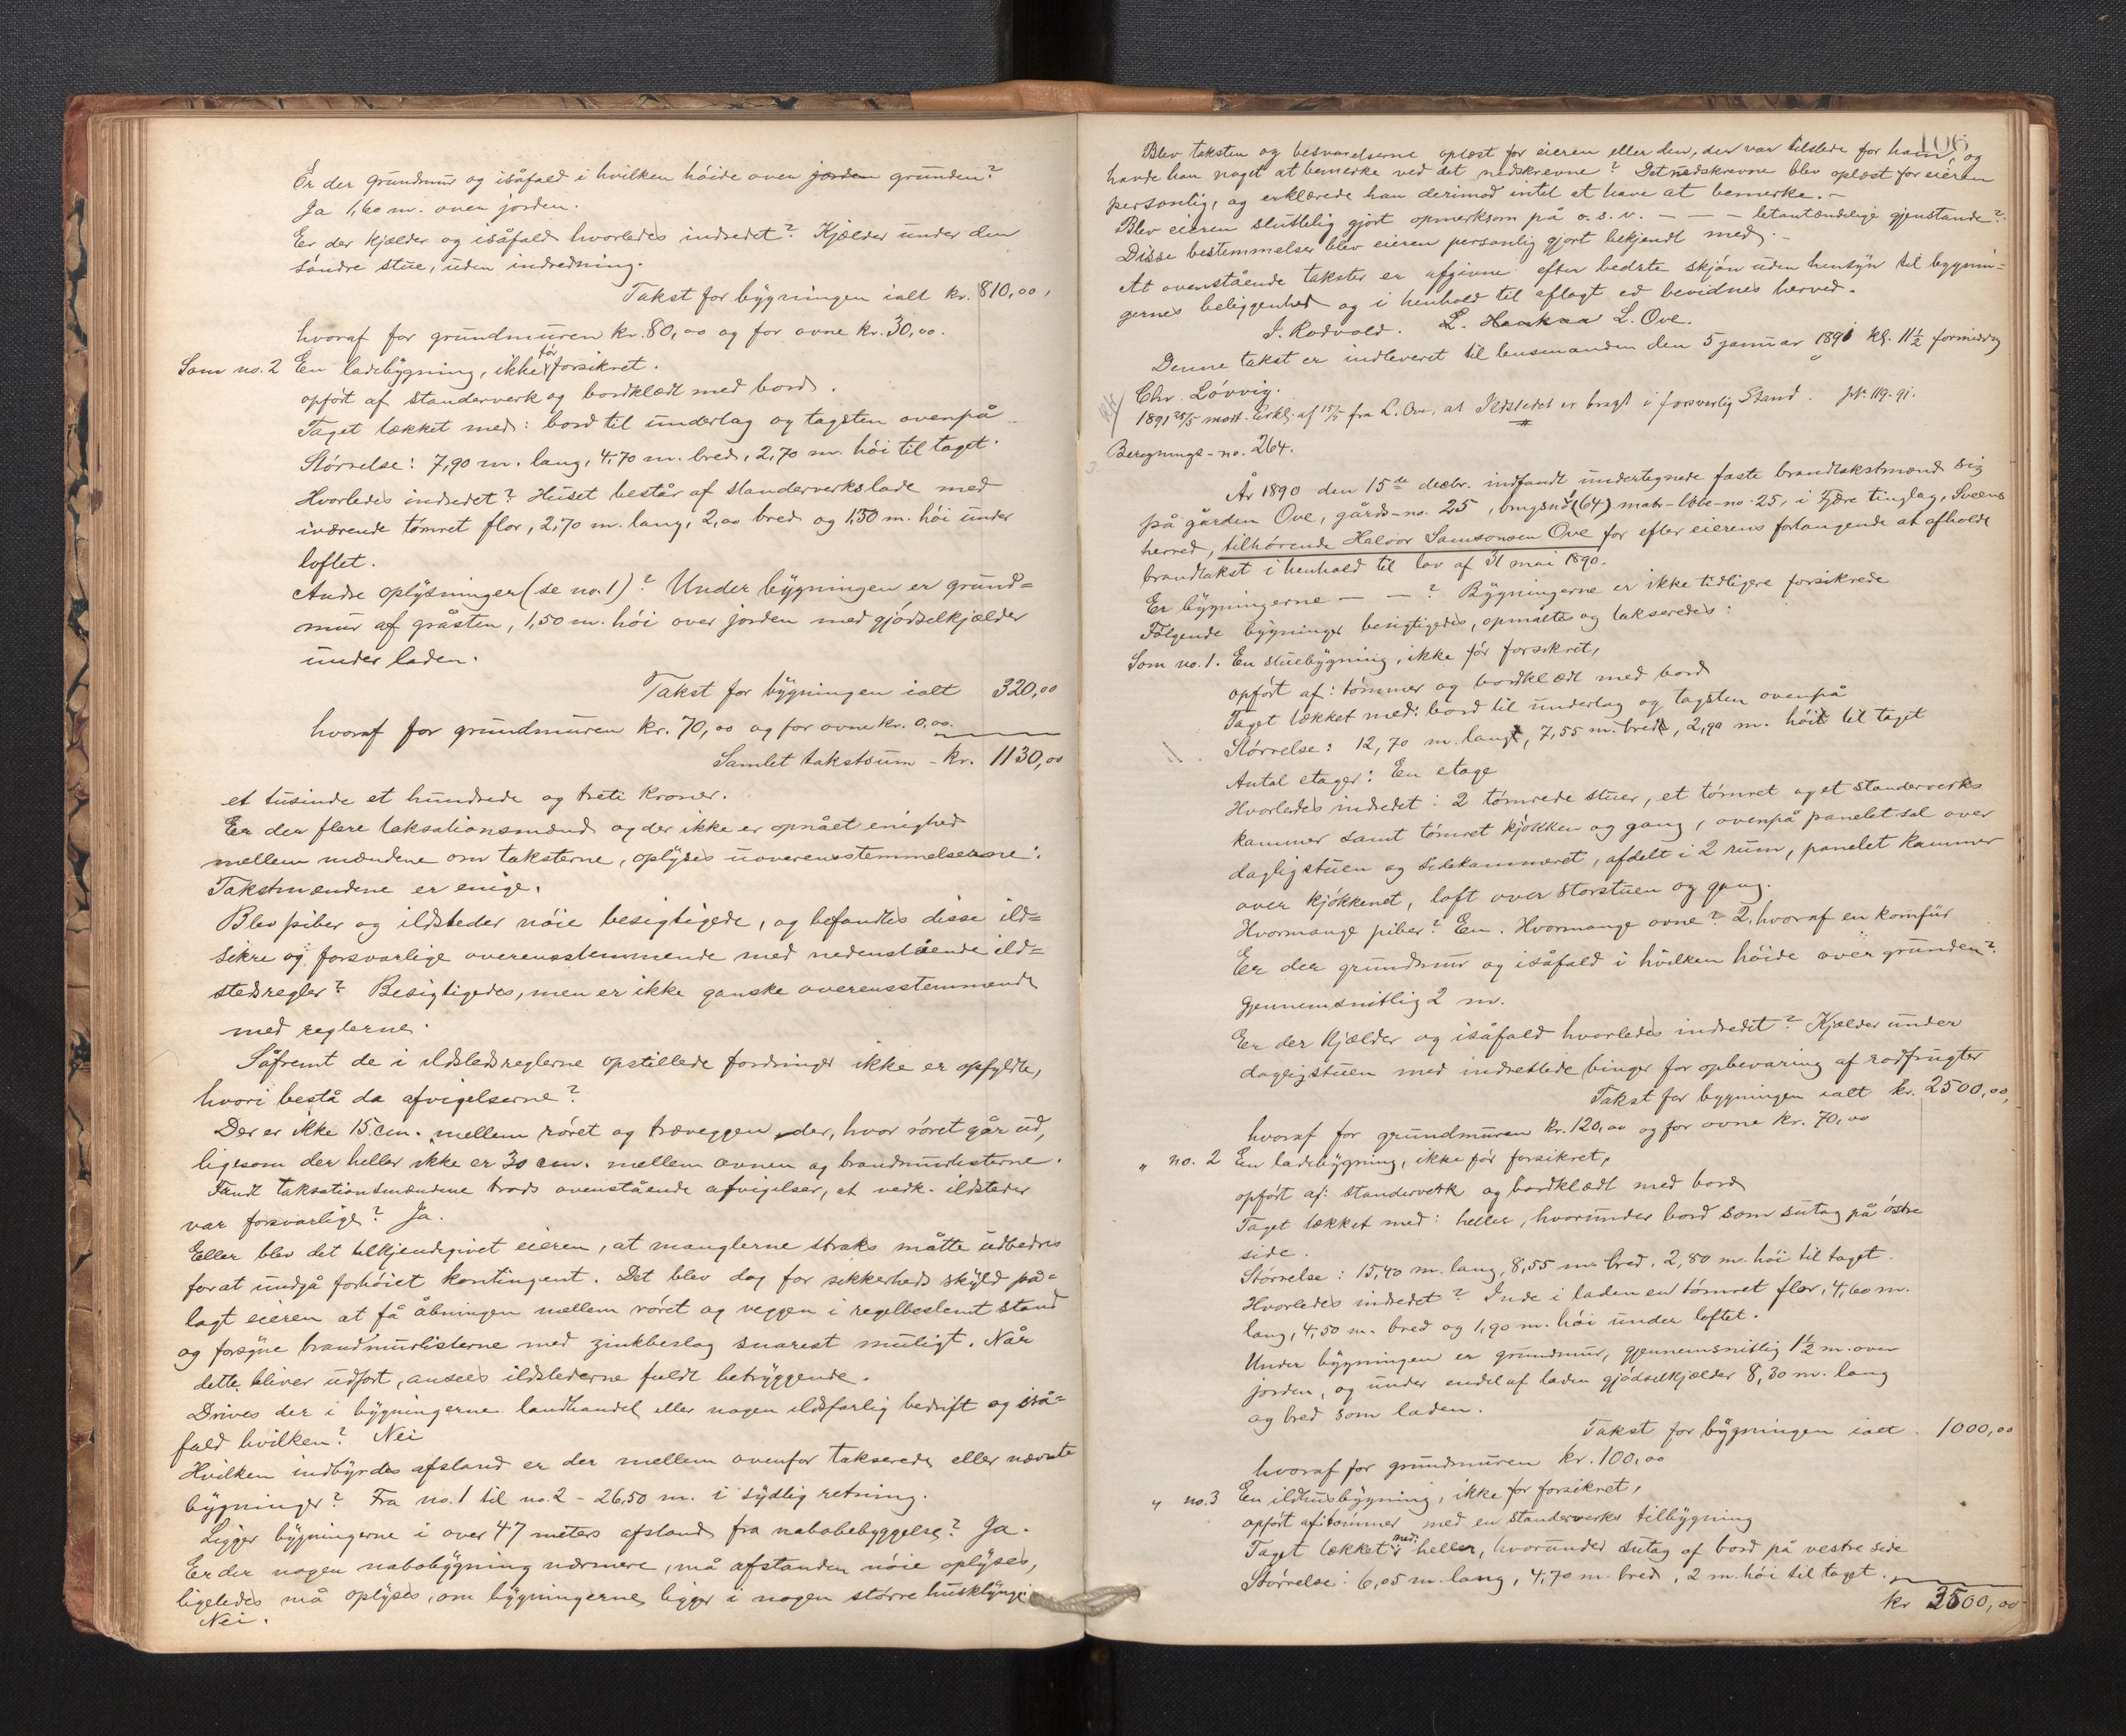 Er der grundmur og isåfald i hvilken höide over jorden grunden?
Ja 1,60 m. over jorden.
Er der kjælder og isåfald hvorledes indredet? Kjælder under den
söndre stue, uden indredning.
Takst for bygningen ialt kr. 810,00,
hvoraf for grundmuren kr. 80,00 og for ovne kr. 30,00.
Som no. 2 En ladebygning, ikke för forsikret.
opfört af standerverk og bordklædt med bord.
Taget tækket med: bord til underlag og tagsten ovenpå
Störrelse: 7,90 m. lang, 4,70 m. bred, 2,70 m. höi til taget.
Hvorledes indredet? Huset består af standerverkslade med
iværende tömret flor, 2,70 m. lang, 2,00 bred og 1,50 m. höi under
loftet.
Andre oplysninger (se no. 1)? Under bygningen er grund=
mur af gråsten, 1,50 m. höi over jorden med gjödselkjælder
under laden.
Takst for bygningen ialt 320,00
hvoraf for grundmuren kr. 70,00 og for ovne kr. 0,00.
Samlet takstsum - kr. 1130,00
et tusinde et hundrede og treti kroner.
Er der flere taksationsmænd og der ikke er opnået enighed
mellem mændene om taksterne, oplyses uoverensstemmelserne:
Takstmændene er enige.
Blev piber og ildsteder nöie besigtigede, og befandtes disse ild=
sikre og forsvarlige overensstemmende med nedenstående ild=
stedsregler? Besigtigedes, men er ikke ganske overensstemmende
med reglerne.
Såfremt de i ildstedsreglerne opstillede fordringer ikke er opfyldte,
hvori bestå da afvigelserne?
Der er ikke 15 cm. mellem röret og træveggen der, hvor röret går ud,
ligesom der heller ikke er 30 cm. mellem ovnen og brandmurlisterne.
Fandt taksationsmændene trods ovenstående afvigelser, at vedk. ildsteder
var forsvarlige? Ja.
Eller blev det tilkjendegivet eieren, at manglerne straks måtte udbedres
for at undgå forhöiet kontingent. Det blev dog for sikkerheds skyld på=
lagt eieren at få åbningen mellem röret og veggen i regelbestemt stand
og forsyne brandmurlisterne med zinkbeslag snarest muligt. Når
dette bliver udfört, ansees ildstederne fuldt betryggende.
Drives der i bygningerne landhandel eller nogen ildsfarlig bedrift og iså=
fald hvilken? Nei
Hvilken indbyrdes afstand er der mellem ovenfor takserede eller nævnte
bygninger? Fra no. 1 til no. 2 - 26,50 m. i sydlig retning.
Ligger bygningerne i over 47 meters afstand fra nabobebyggelse? Ja.
Er der nogen nabobygning nærmere, må afstanden nöie oplyses,
ligeledes må oplyses, om bygningerne ligger i nogen större husklynge
Nei.
106
Blev taksten og besvarelserne oplæst for eieren eller den, der var tilstede for ham, og
havde han noget at bemerke ved det nedskrevne? Det nedskrevne blev oplæst for eieren
personlig, og erklærede han derimod intet at have at bemerke. -
Blev eieren sluttelig gjort opmerksom på o.s.v. - - - letantændelige gjenstande?
Disse bestemmelser blev eieren personlig gjort bekjendt med. -
At ovenstående takster er afgivne efter bedste skjön uden hensyn til bygnin=
gernes beliggenhed og i henhold til aflagt ed bevidnes herved.
I. Rodvold. L. Haakaa L. Ove.
Denne takst er indleveret til lensmanden den 5 januar 1891 kl. 11½ formiddag
Chr. Lövvig.
1891 25/5 modt. Erkl. af 15/5 fra L. Ove, at Ildstedet er bragt i forsvarlig Stand. Jr. 119-91.
Beregnings-no. 264.
År 1890 den 15de decbr. indfandt undertegnede faste brandtakstmænd sig
på gården Ove, gårds-no. 25, brugsno (64) matr-löbe-no 25, i Fjære tinglag, Sveens
herred, tilhörende Halvor Samsonsen Ove for efter eierens forlangende at afholde
brandtakst i henhold til lov af 31 mai 1890.
Er bygningerne - - ? Bygningerne er ikke tidligere forsikrede
Fölgende bygninger besigtigedes, opmåltes og takseredes:
Som no. 1. En stuebygning, ikke för forsikret,
opfört af: tömmer og bordklædt med bord
Taget tækket med: bord til underlag og tagsten ovenpå
Störrelse: 12,70 m. lang, 7,55 m. bred, 2,90 m. höi til taget
Antal etager: En etage
Hvorledes indredet: 2 tömrede stuer, et tömret og et standerverks
kammer samt tömret kjökken og gang, ovenpå panelet sal over
dagligstuen og sidekammeret, afdelt i 2 rum, panelet kammer
over kjökkenet, loft over storstuen og gang.
Hvormange piber? En. Hvormange ovne? 2, hvoraf en komfur
Er der grundmur og isåfald i hvilken höide over grunden?
Gjennemsnitlig 2 m.
Er der kjælder og isåfald hvorledes indredet? Kjælder under
dagligstuen med indrettede binger for opbevaring af rodfrugter
Takst for bygningen ialt kr. 2500,00,
hvoraf for grundmuren kr. 120,00 og for ovne kr. 70,00
" no. 2 En ladebygning, ikke för forsikret,
opfört af: standerverk og bordklædt med bord
Taget tækket med: heller, hvorunder bord som sutag på östre
side.
Störrelse: 15,40 m. lang, 8,55 m. bred, 2,80 m. höi til taget.
Hvorledes indredet? Inde i laden en tömret flor, 4,60 m.
lang, 4,50 m. bred og 1,90 m. höi under loftet.
Under bygningen er grundmur, gjennemsnitlig 1½ m. over
jorden, og under endel af laden gjödselkjælder 8,30 m. lang
og bred som laden.
Takst for bygningen ialt. 1000,00
hvoraf for grundmuren kr. 100,00
" no. 3 En ildhusbygning, ikke för forsikret,
opfört af: tömmer med en standerverks tilbygning
Taget tækket med heller, hvorunder sutag af bord på vestre side
Störrelse: 6,05 m. lang, 4,70 m. bred, 2 m. höi til taget.
kr 3500,00